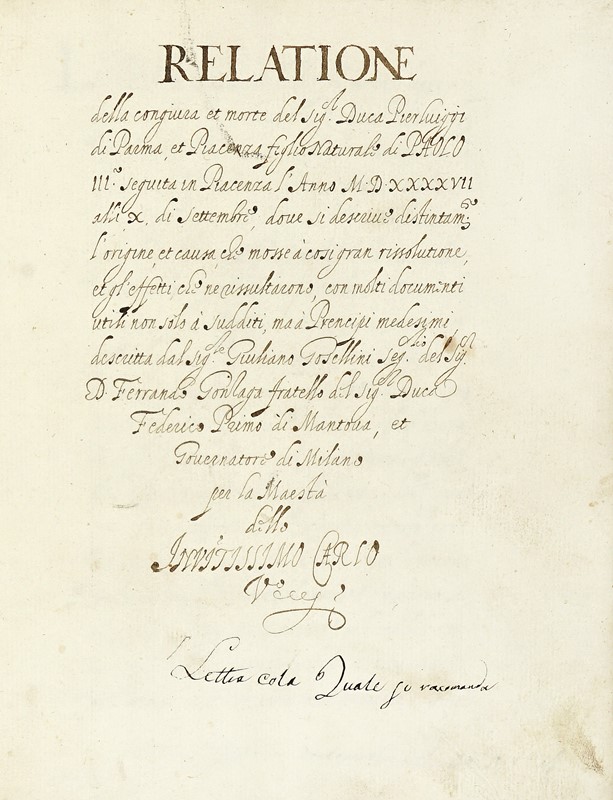 RELATIONE
della congiura et morte del sig.r Duca Pierluiggi
di Parma, et Piacenza figlio Naturale di PAOLO
III.o seguita in Piacenza l'Anno M.D.XXXXVII
alli X. di Settembre, dove si descrive distintam.te
l'origine, et causa, che mosse à cosi gran rissolutione,
et gl'effetti, che ne rissultarono, con molti documenti
utili non solo à sudditi, ma à Prencipi medesimi,
descritta dal sig.re Giuliano Gosellini seg.rio del sig.r
D. Ferrando Gonzaga fratello del sig.r Duca
Federico Primo di Mantova, et
Governatore di Milano
per la Maestà
dello
INVITISSIMO CARLO
V.
Lettra cola Quale si racomanda